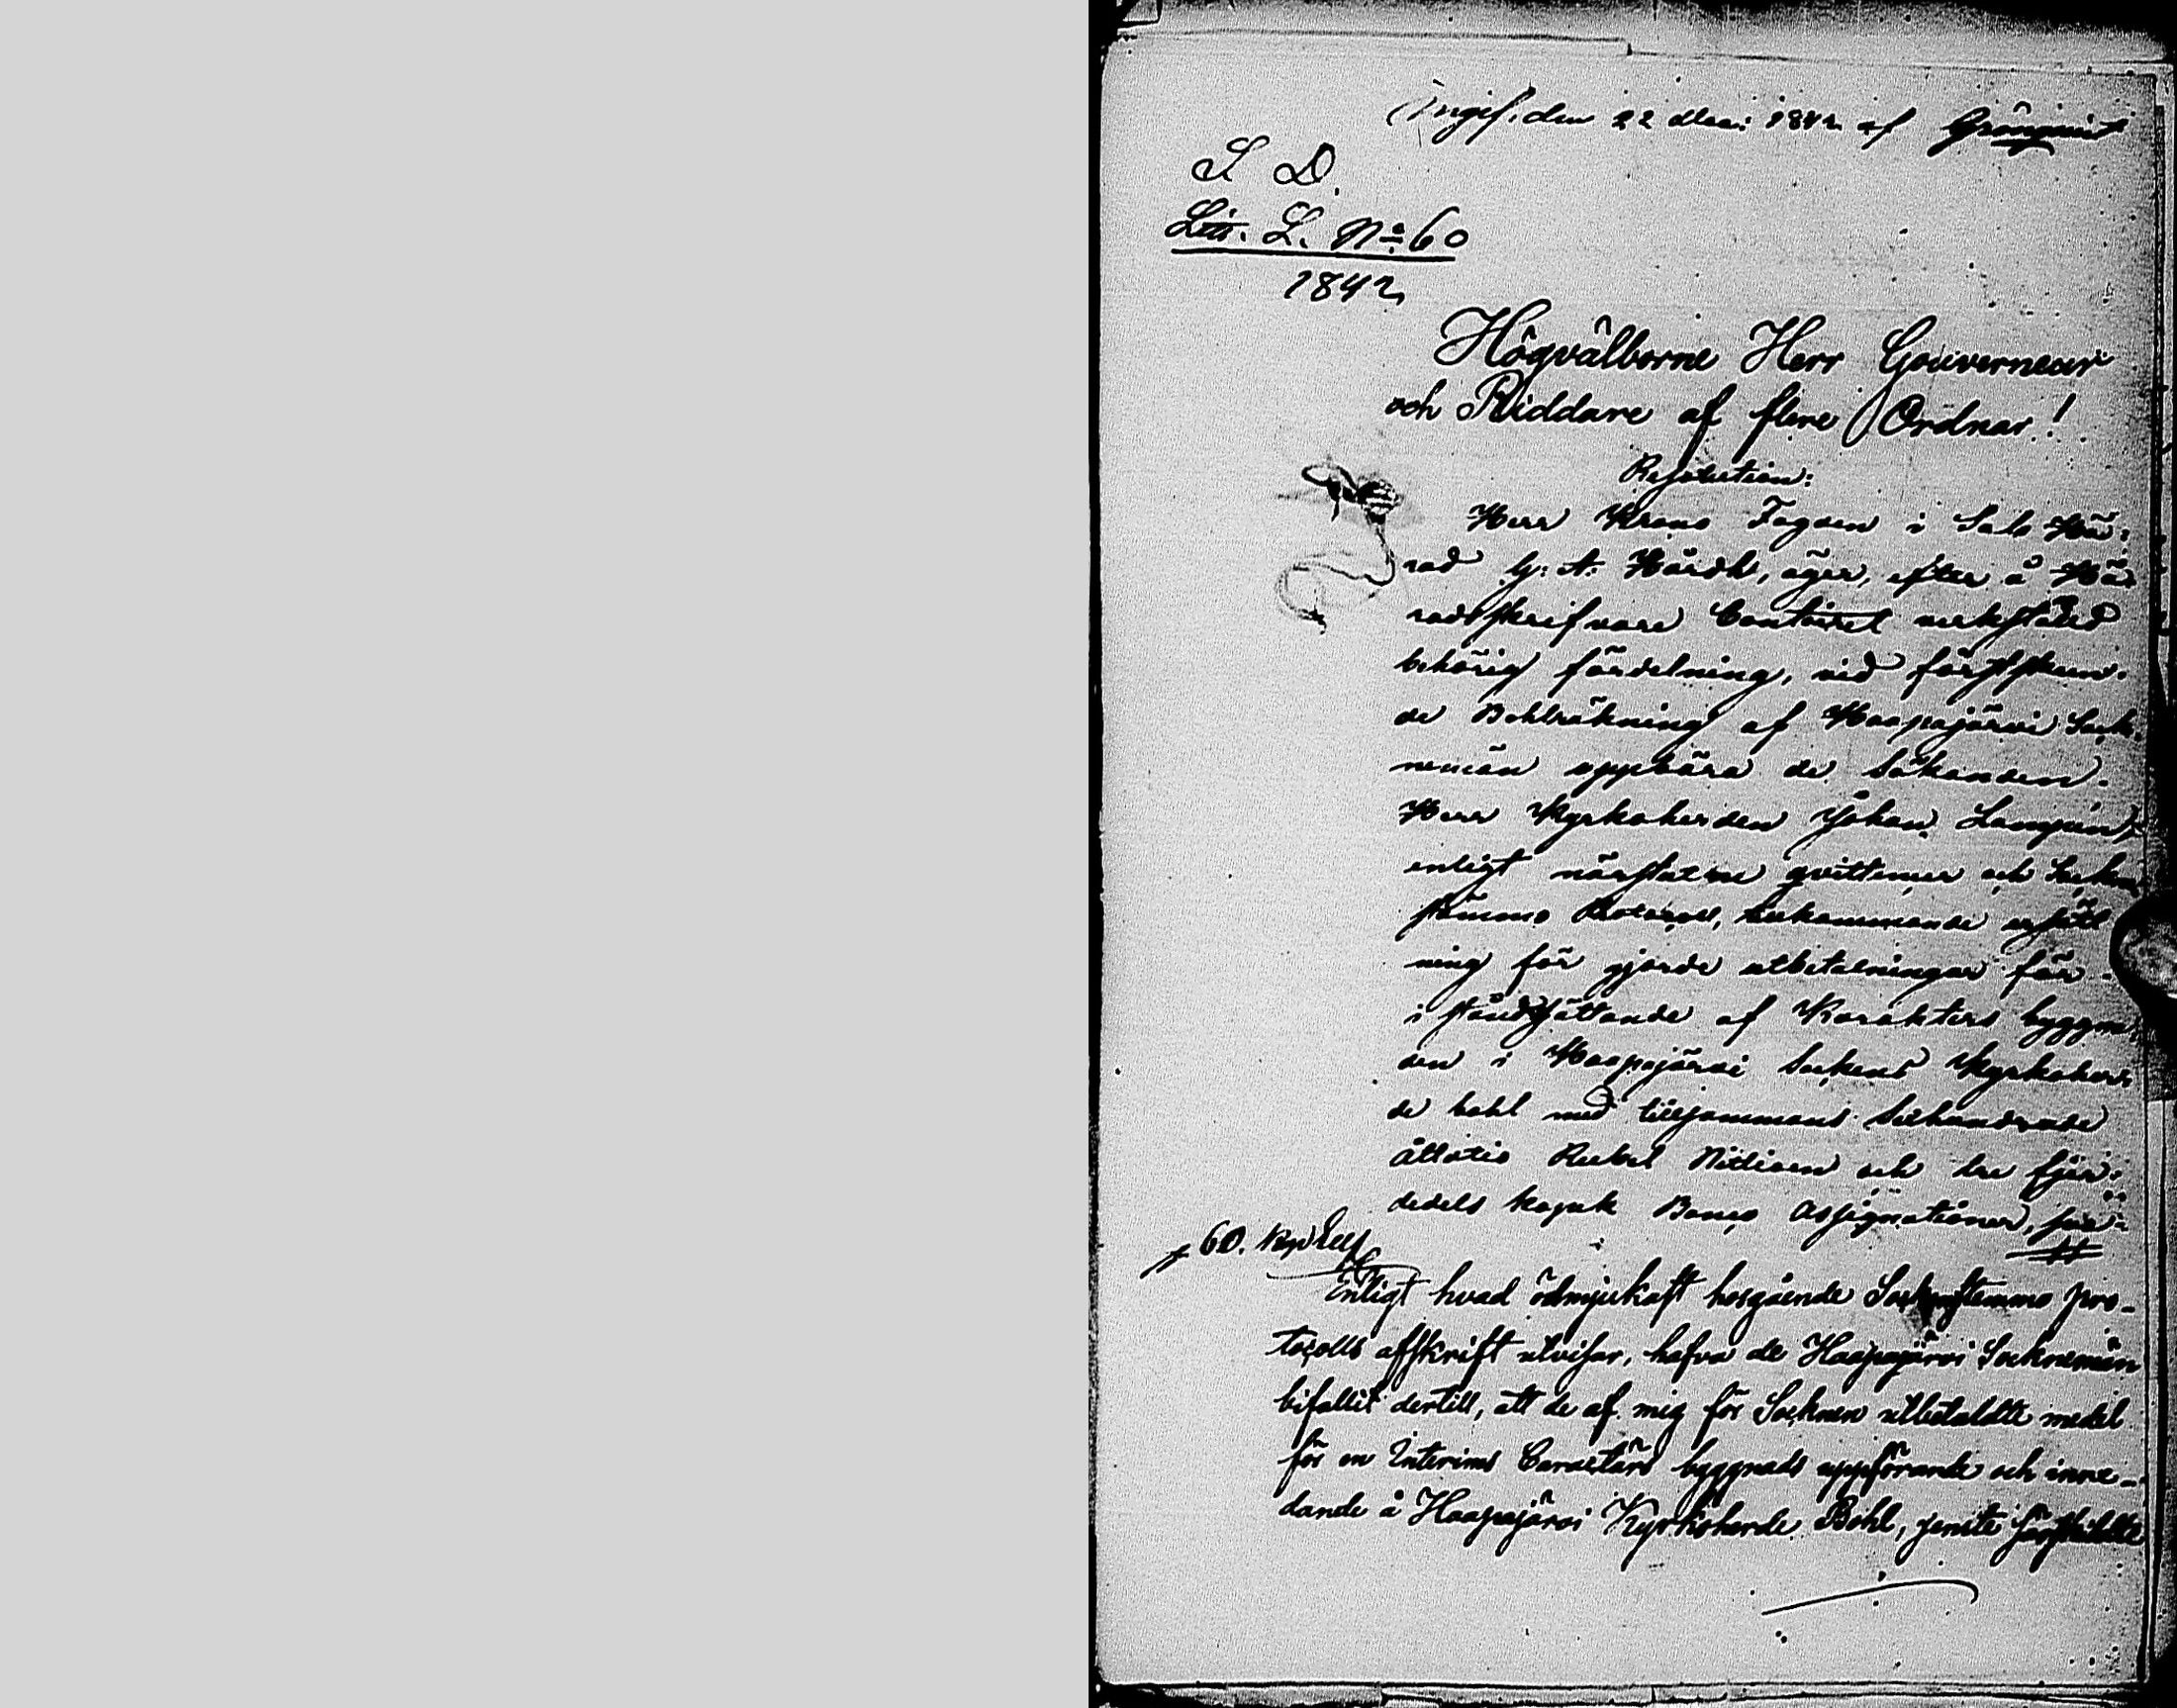 Ingif. den 22 Mai 1842 af Grönqvist
S D.
Litt. L. No 60
1842,
Högvälborne Herr Gouverneur
och Riddare af flere Ordnar!
Resolution:
Herr Krono Fogden i Salo Hä-
rad G: A: Hårdh, äger, efter å Hä-
radsskrifvare Contoiret verkstäld
behörig fördelning, vid förstskeen-
de Bohlräkning af Haapajärvi Sock-
nemän uppbära de Sökanden
Herr Kyrkoherden Johan
enligt närslutne qvittencer och Sockne
stämmo Protocoll, tillkommande ersätt
ning för gjorde utbetalningar för
i ståndsättande af Karakters byggna
den i Haapajärvi Sockens Kyrkoher-
de bohl med tillsammans Sexhundrade
åttatio Rubel Nittioen och tre fjer-
dedels kopek Banco Assignationer,
60. Kop
Enligt hvad ödmjukast hosgående Sockenstemmo pro-
tocolls afskrift utvisar, hafva de Haapajärvi Socknemän
bifallit dertill, att de af mig för Socknen utbetaldte medel
för en Interims Caractärs byggnads uppförande och inre-
dande å Haapajärvi Kyrkoherde Bohl, jemte